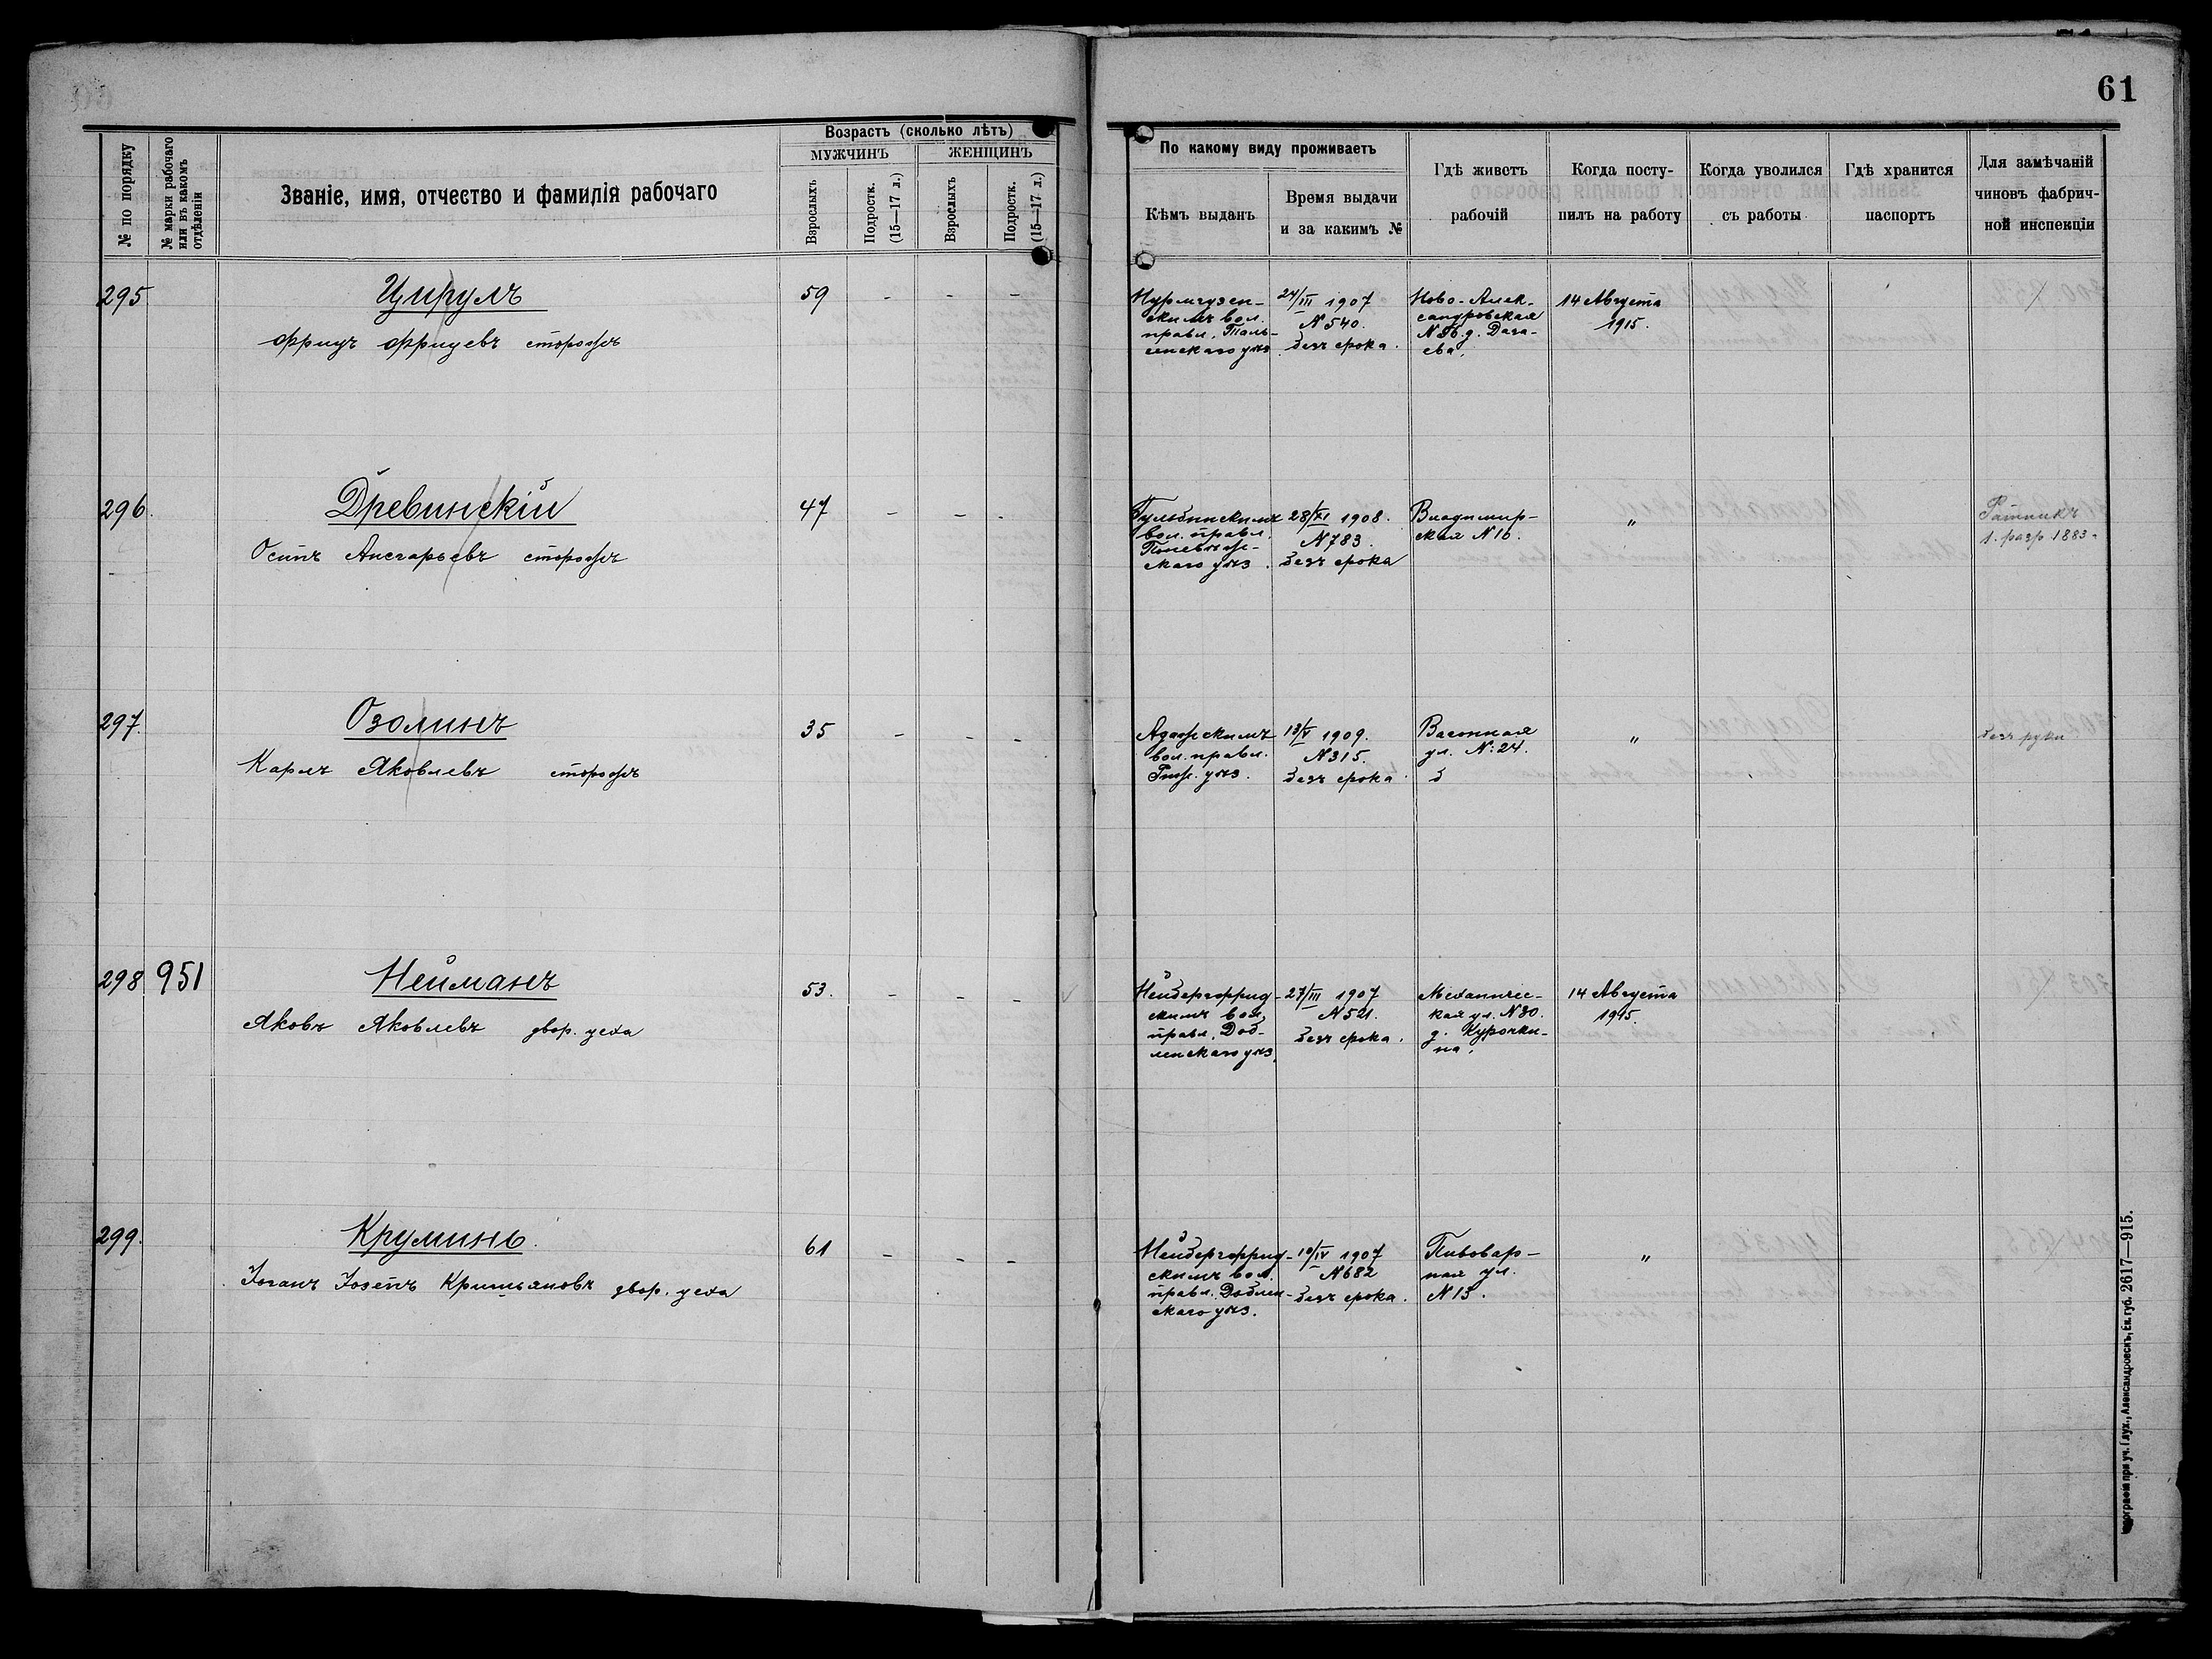 61
№ по порядку
№ марки рабочаго
или въ какомъ
отдѣленіи
Званіе, имя, отчество и фамилія рабочаго
Возрастъ (сколько лѣтъ)
МУЖЧИНЪ
ЖЕНЩИНЪ
Взрослыхъ
Подростк.
(15—17 л.)
Взрослыхъ
Подростк.
(15—17 л.)
По какому виду проживаетъ
Кѣмъ выданъ
Время выдачи
и за какимъ №
Гдѣ живетъ
рабочій
Когда посту-
пилъ на работу
Когда уволился
съ работы
Гдѣ хранится
паспортъ
Для замѣчаній
чиновъ фабрич-
ной инспекціи
295
Цирулъ
Фрицъ Фрицевъ сторожъ
59 - - -
Нурмгузен-
скимъ вол.
правл. Таль-
сенскаго уѣз
24/III 1907
N 540.
безъ срока.
Ново-Алек-
сандровская
N 86. д. Даза-
ева.
14 Августа
1915.
296.
Древинскій
Осипъ Ансгарьевъ сторожъ
47 - - -
Гульбинскимъ
вол. правл.
Поневѣж-
скаго уѣз.
28/XI 1908.
N 783.
безъ срока
Владимир-
ская N 16.
"
Ратникъ
1. разр 1883.
297.
Озолинъ
Карлъ Яковлевъ сторожъ
35 - - -
Адажскимъ
вол. правл.
Риж. уѣз.
13/V 1909.
N 315.
безъ срока.
Вагонная
ул. N: 24.
б
"
безъ руки
298 951
Нейманъ
Яковъ Яковлевъ двор. цеха
53. - - -
Нейбергфрид-
скимъ вол.
правл. Доб-
ленскаго уѣз.
27/III 1907
N 521.
безъ срока.
Механичес-
кая ул. N 30.
д. Курочки-
на.
14 Августа
1915.
299.
Круминь.
Іоганъ Іозепъ Кришьяновъ двор. цеха
61 - - -
Нейбергфрид-
скимъ вол.
правл. Доблен-
скаго уѣз.
10/IV 1907
N 682
безъ срока.
Пивовар-
ная ул.
N 13.
"
Типографія при уч. Глух., Александровскъ, Ек. губ. 2617—915.